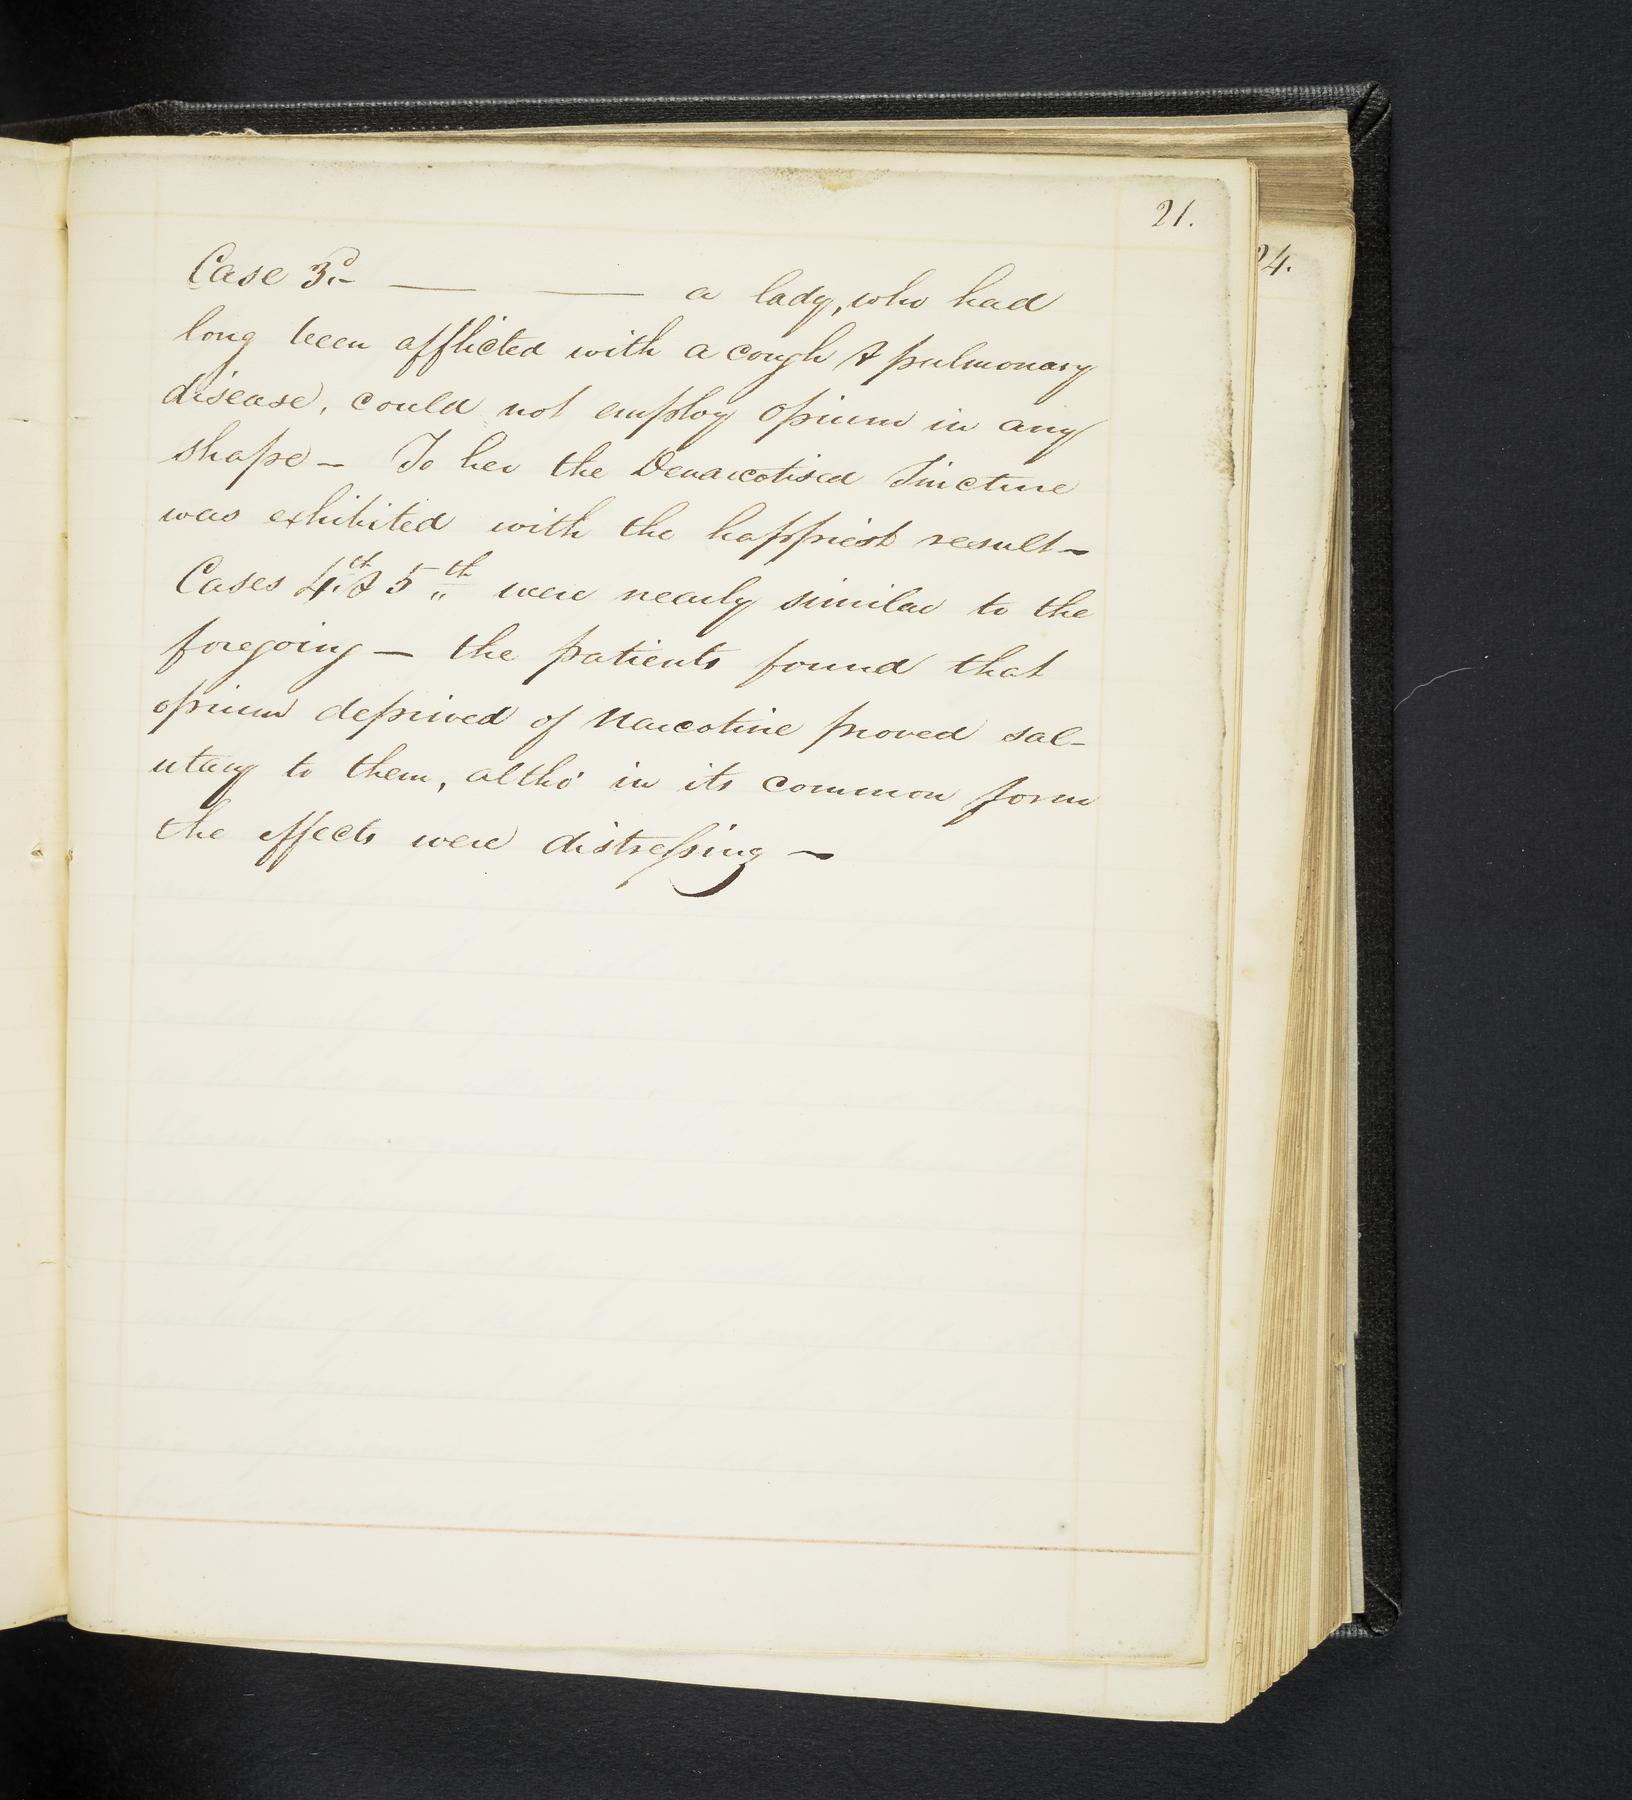 21.
24.
Case 3d.— —— —— a lady, who had
long been afflicted with a cough & pulmonary
disease, could not employ Opium in any
shape — To her the Denarcotised Tincture
was exhibited with the happiest result —
Cases 4th & 5th were nearly similar to the
foregoing — the patients found that
opium deprived of Narcotine proved sal-
utary to them, altho' in its common form
the effects were distressing —